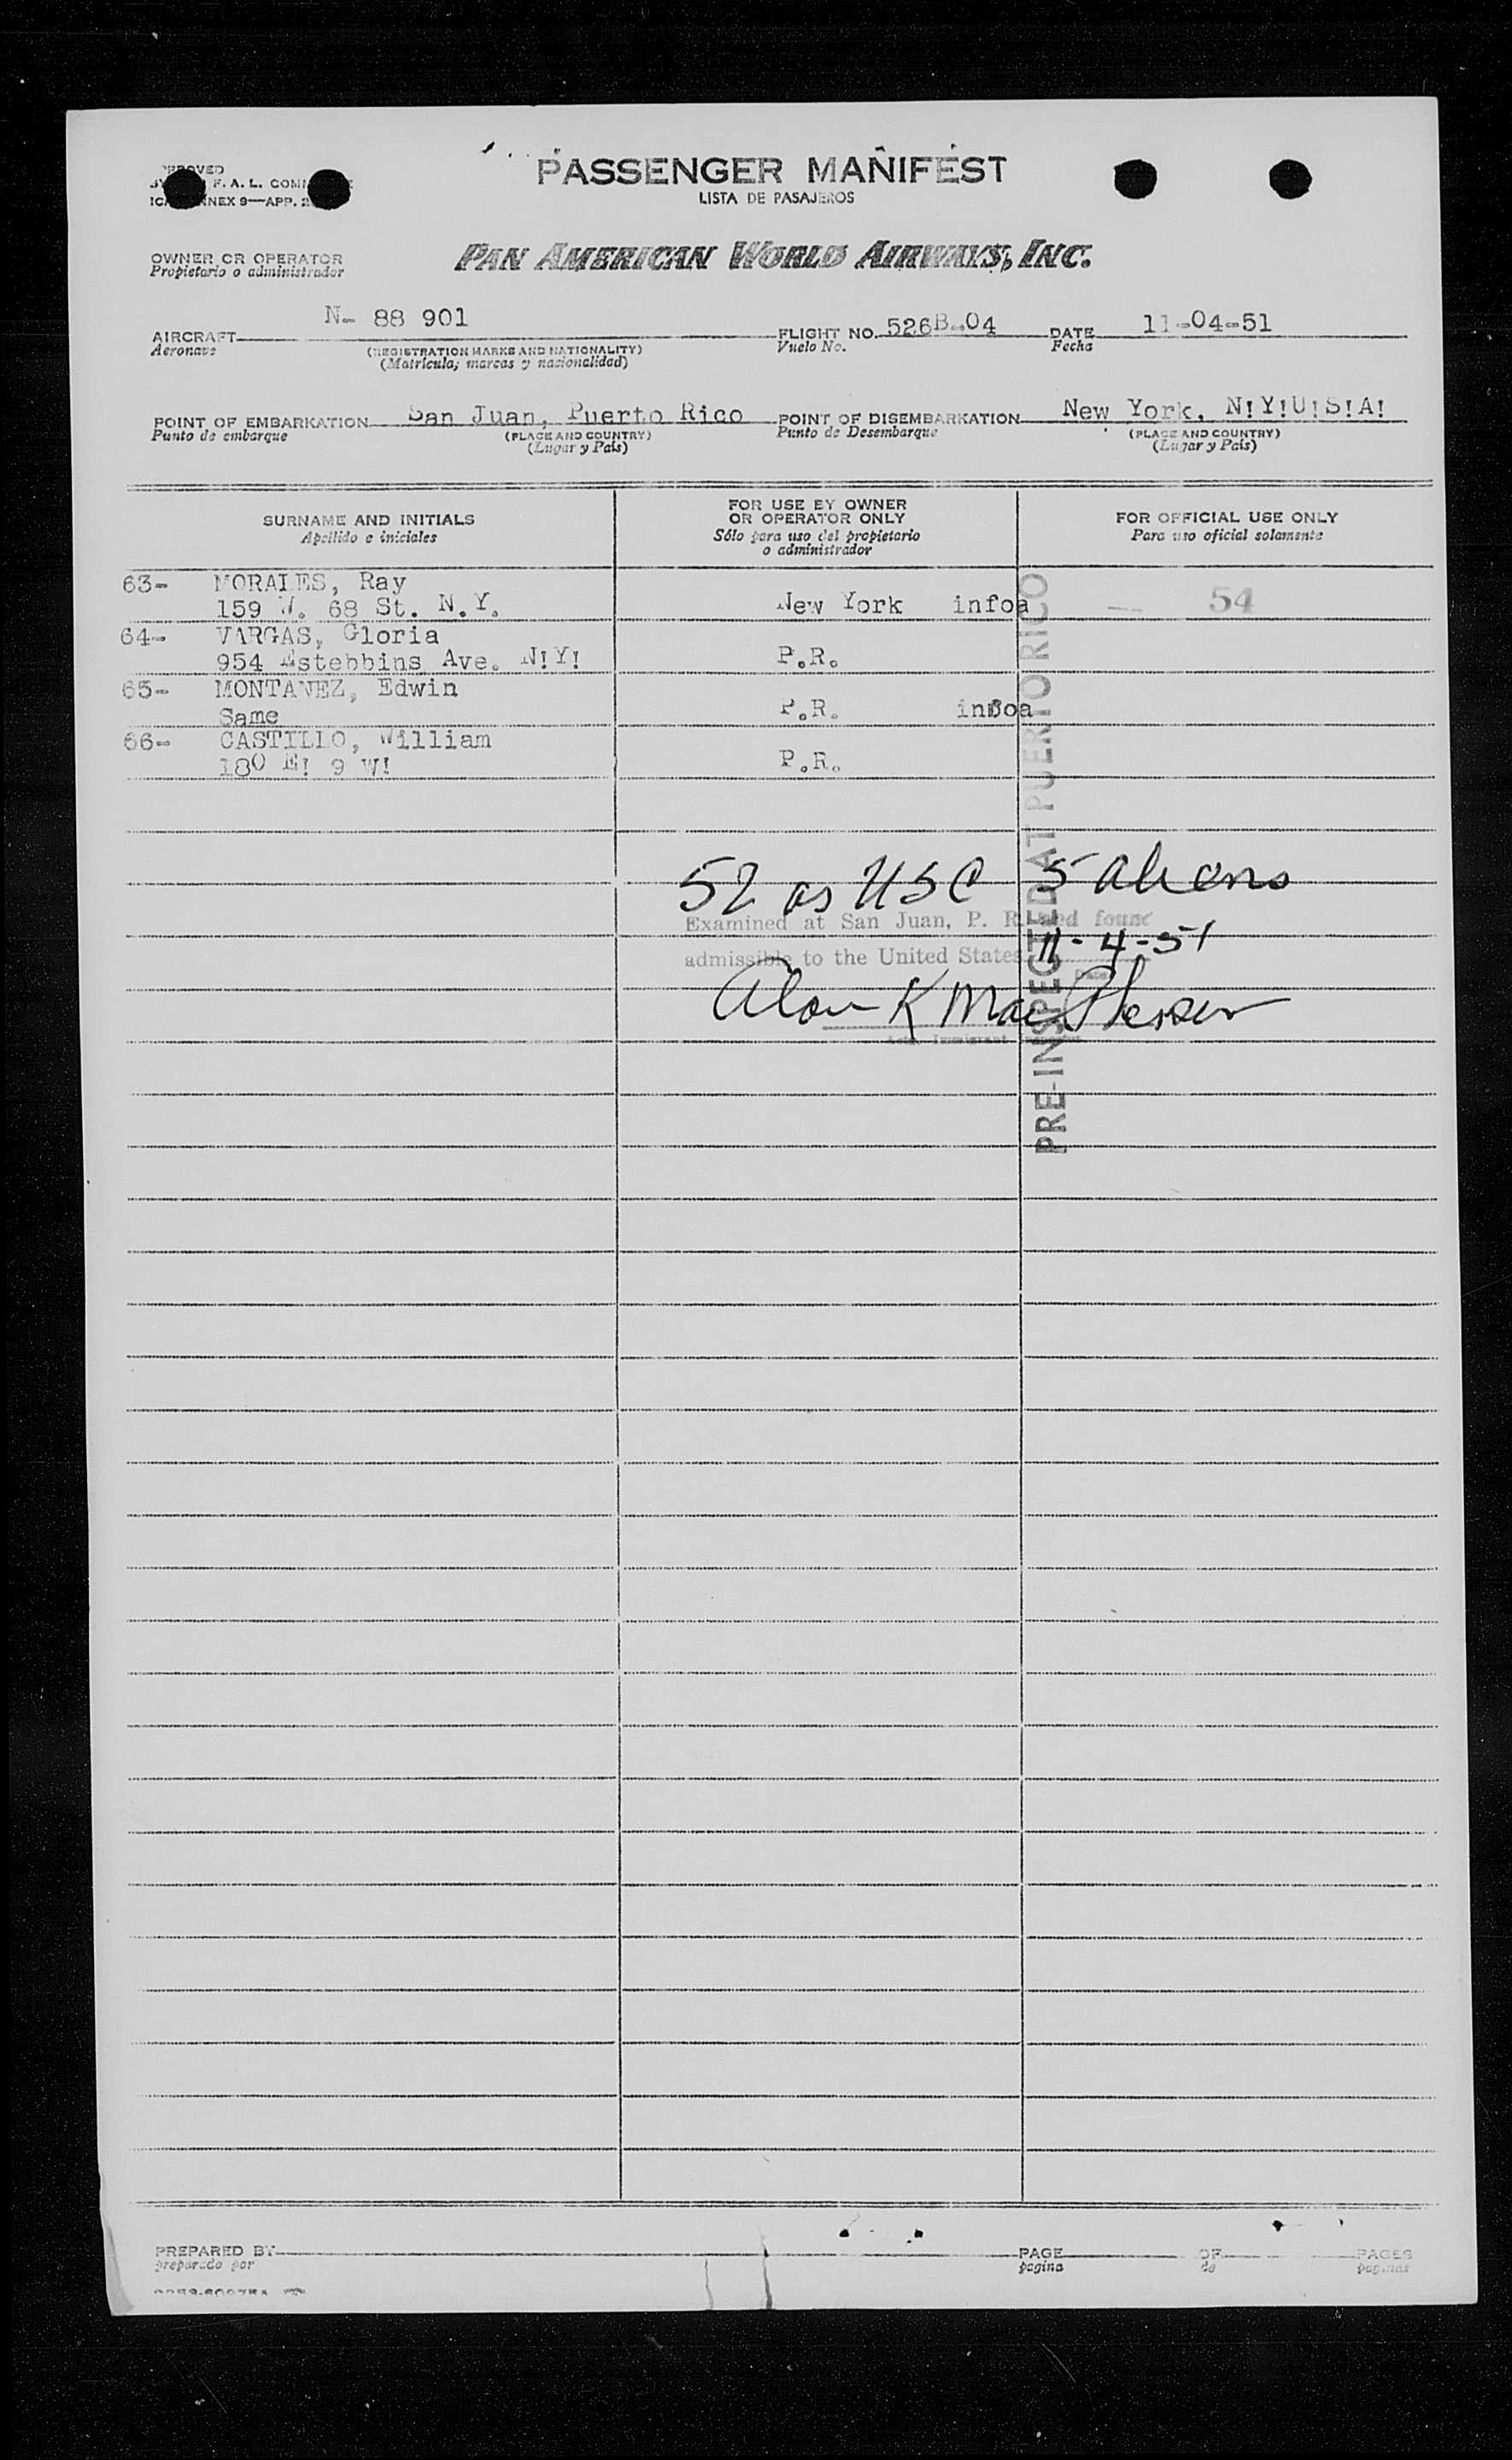 PASSENGER MANIFEST
LISTA DE PASAJEROS
F. A. L.
9—APP.
PAN AMERICAN WORLD AIRWAYS, INC.
OWNER OR OPERATOR
Propietario o administrador
AIRCRAFT N- 88 901 FLIGHT NO. 526B-04 DATE 11-04-51
Aeronave (REGISTRATION MARKS AND NATIONALITY) Vuelo No. Fecha
(Matrícula; marcas y nacionalidad)
POINT OF EMBARKATION San Juan, Puerto Rico POINT OF DISEMBARKATION New York, N!Y!U!S!A!
Punto de embarque (PLACE AND COUNTRY) Punto de Desembarque (PLACE AND COUNTRY)
(Lugar y País) (Lugar y País)
SURNAME AND INITIALS
Apellido e iniciales
FOR USE BY OWNER
OR OPERATOR ONLY
Sólo para uso del propietario
o administrador
FOR OFFICIAL USE ONLY
Para uso oficial solamente
63- MORALES, Ray
159 W. 68 St. N.Y. New York infoa 54
64- VARGAS, Gloria
954 Estebbins Ave. N!Y! P.R.
65- MONTANEZ, Edwin
Same P.R. infoa
66- CASTILLO, William
180 E! 9 W! P.R.
PRE-INSPECTED AT PUERTO RICO
52 as USC 5 aliens
Examined at San Juan, P. R. and found
admissible to the United States 11-4-51
Date
Alan K MacPherson
Immigrant
PREPARED BY PAGE OF PAGES
preparado por pagina de paginas